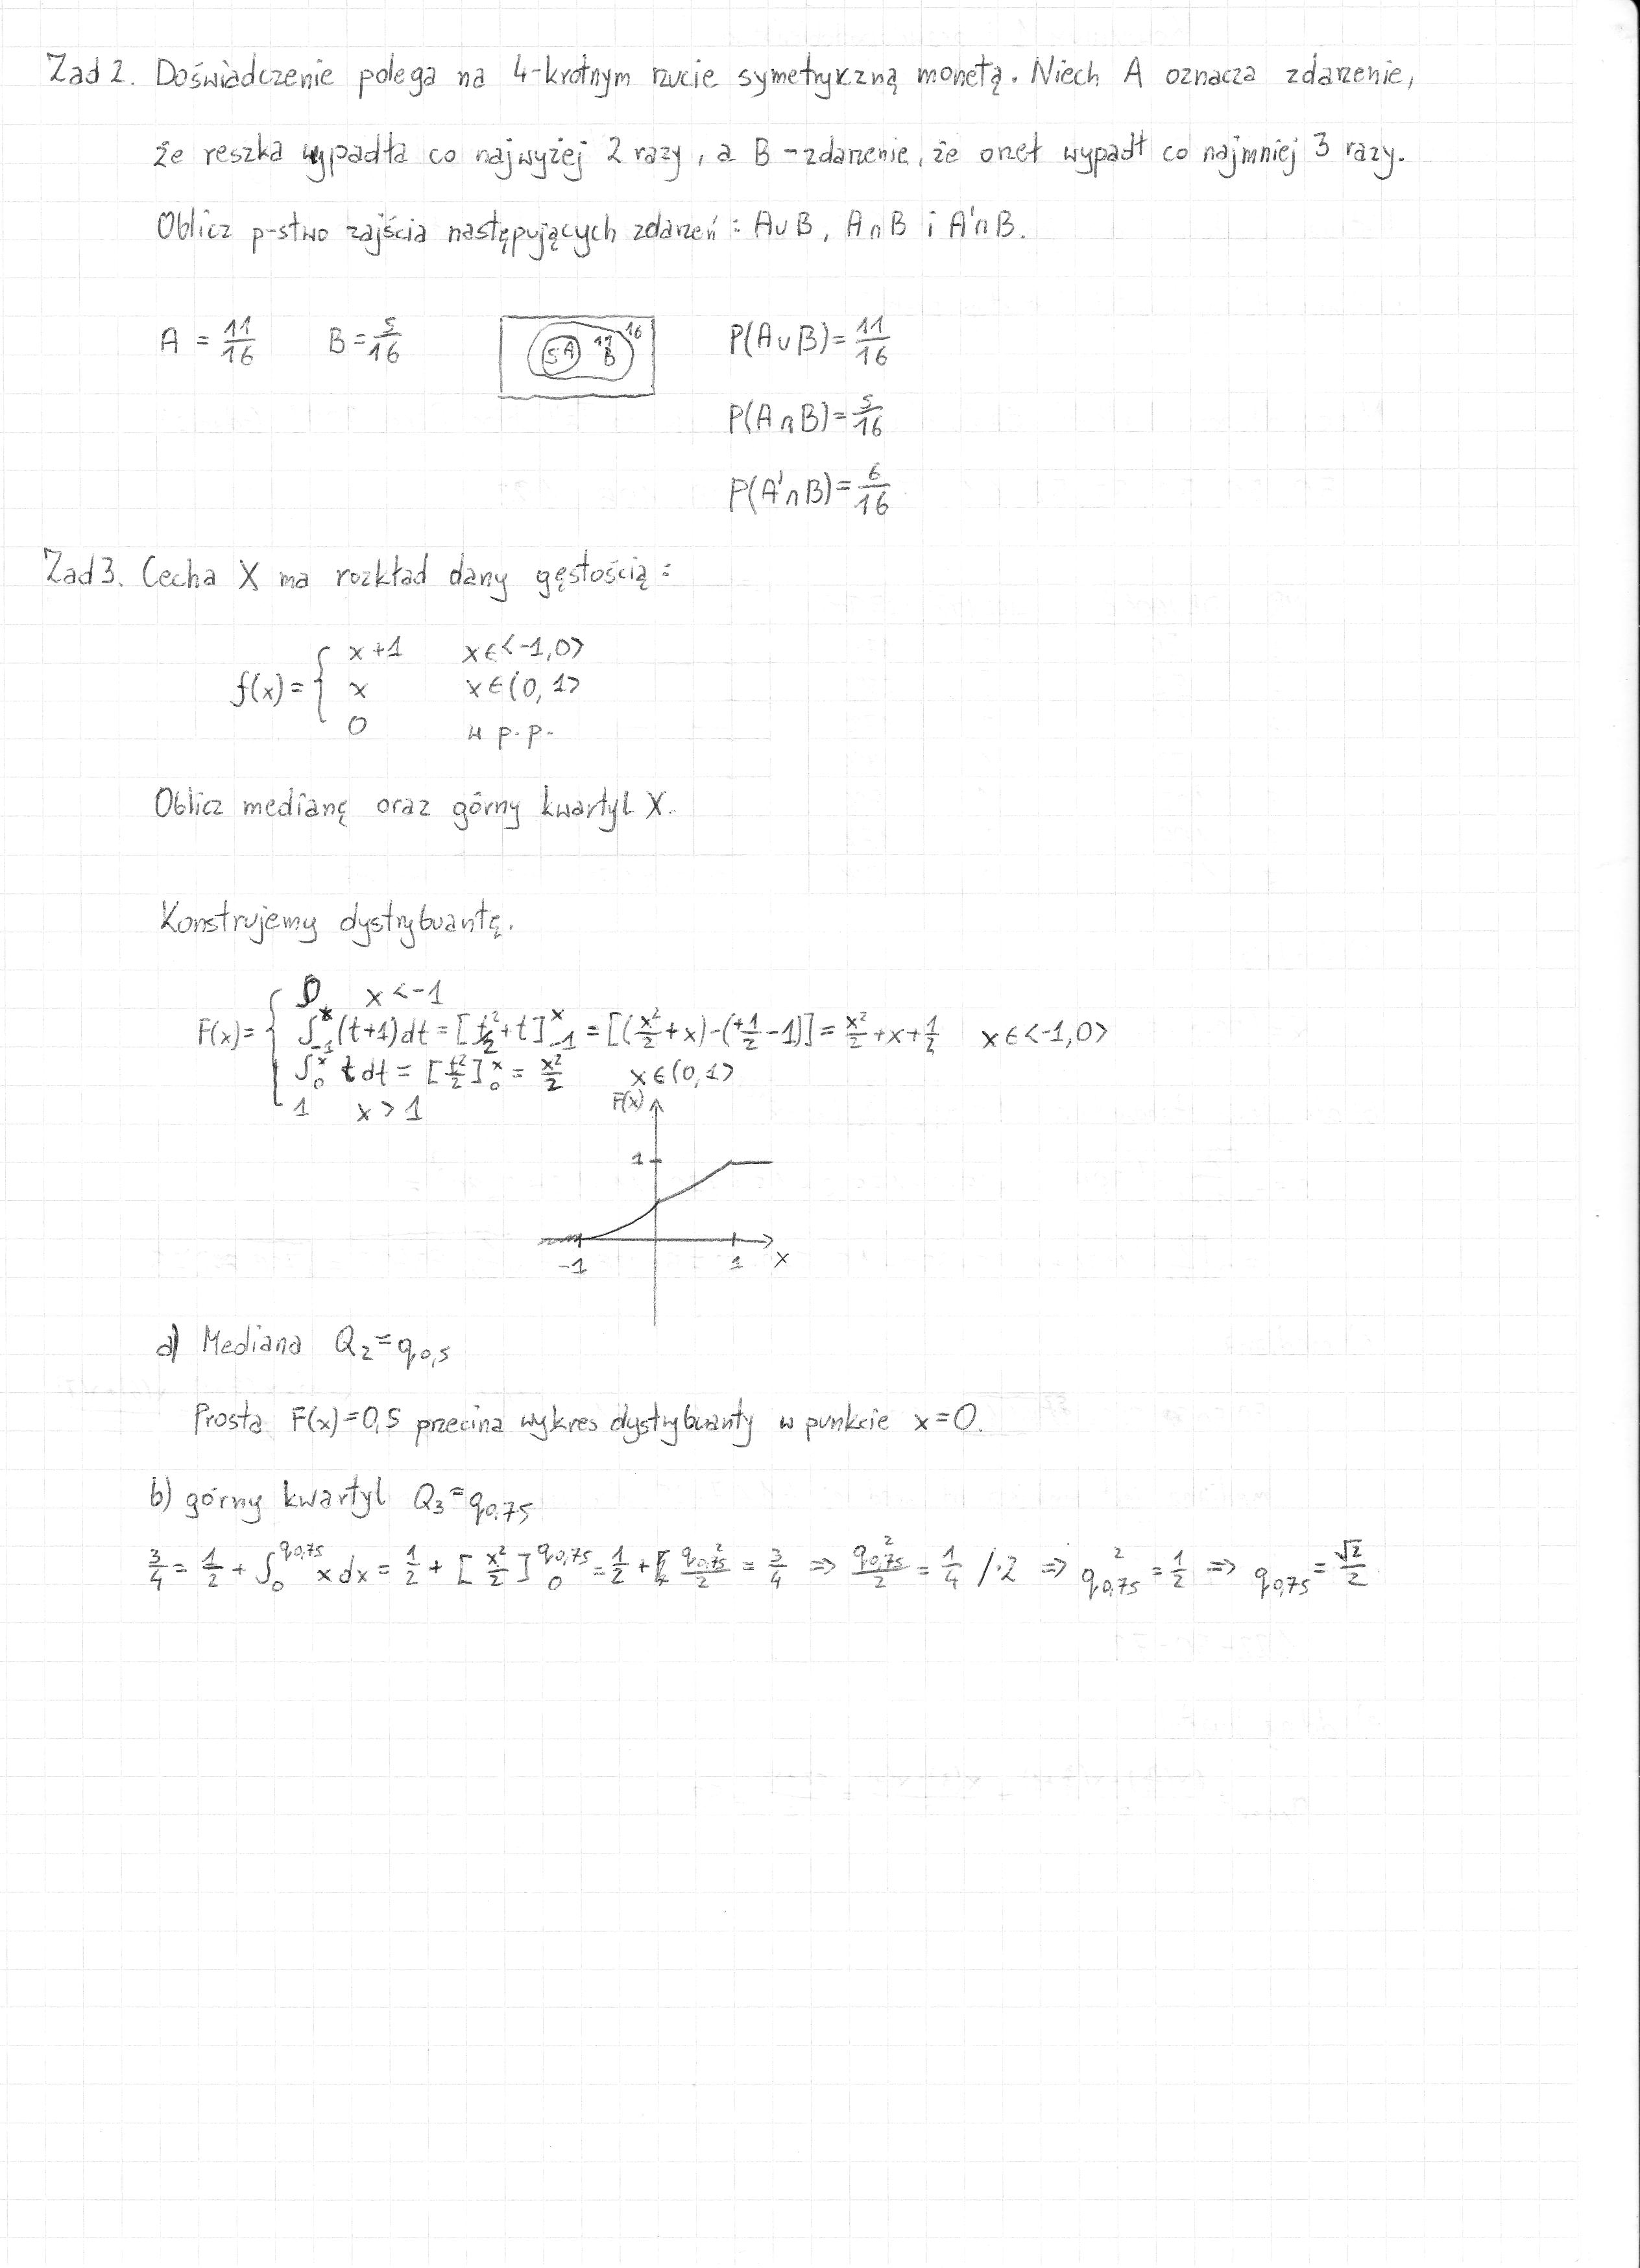 Zad 2. Doświadczenie polega na 4-krotnym rzucie symetryczną monetą. Niech A oznacza zdarzenie,
że reszka wypadła co najwyżej 2 razy, a B - zdarzenie, że orzeł wypadł co najmniej 3 razy.
Oblicz p-stwo zajścia następujących zdarzeń: A∪B, A∩B i A'∩B.
A = 11/16 B = 5/16 5 A 11 B 16 P(A∪B) = 11/16
P(A∩B) = 5/16
P(A'∩B) = 6/16
Zad 3. Cecha X ma rozkład dany gęstością:
f(x) = { x+1 x∈<-1,0>
x x∈(0,1>
0 w p.p.
Oblicz medianę oraz górny kwartyl X.
Konstrujemy dystrybuantę.
F(x) = { 0 x<-1
∫_{-1}^{x} (t+1)dt = [t²/2 + t]_{-1}^{x} = [(x²/2 + x) - (+1/2 - 1)] = x²/2 + x + 1/2 x∈<-1,0>
∫_0^x t dt = [t²/2]_0^x = x²/2 x∈(0,1>
1 x>1
F(x)
1
-1 1 x
a) Mediana Q₂ = q₀,₅
Prosta F(x)=0,5 przecina wykres dystrybuanty w punkcie x=0.
b) górny kwartyl Q₃ = q₀.₇₅
3/4 = 1/2 + ∫_0^{q₀,₇₅} x dx = 1/2 + [x²/2]_0^{q₀,₇₅} = 1/2 + q₀,₇₅²/2 = 3/4 ⇒ q₀,₇₅²/2 = 1/4 /·2 ⇒ q₀,₇₅² = 1/2 ⇒ q₀,₇₅ = √2/2